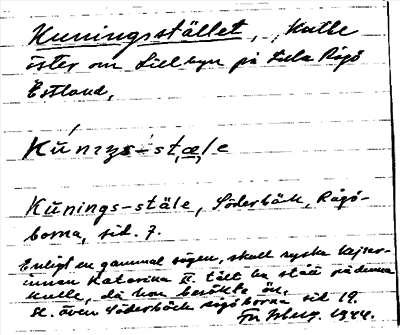 Kuningsstället, kulle
öster om Lillbyn på Lilla Rågö
Estland,
Kúniŋs-stæ̣le
Kunings-stäle, Söderbäck, Rågö-
borna, sid. 7.
Enligt en gammal sägen, skall ryska kejsar-
innan Katarina II. tält ha stått på denna
kulle, då hon besökte ön.
st. även Söderbäck Rågöborna sid 19.
1944.